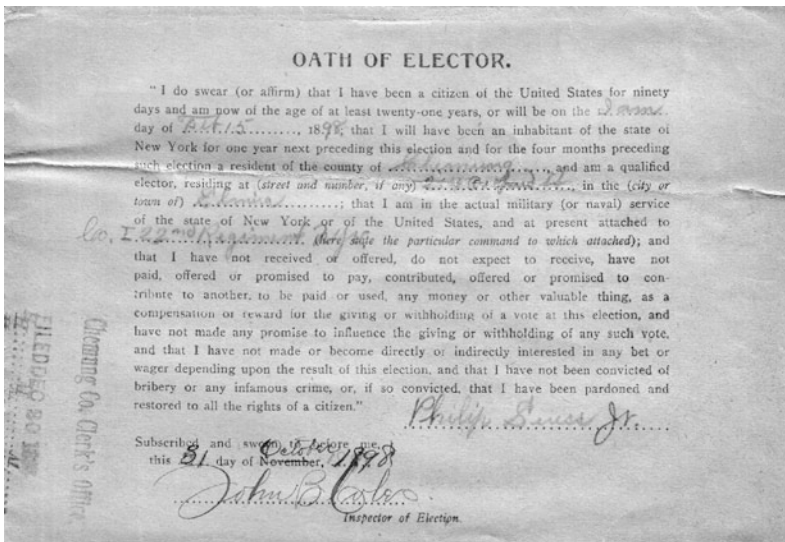 OATH OF ELECTOR.
" I do swear (or affirm) that I have been a citizen of the United States for ninety
days and am now of the age of at least twenty-one years, or will be on the
day of Oct. 15........, 1898; that I will have been an inhabitant of the state of
New York for one year next preceding this election and for the four months preceding
such election a resident of the county of Chemung, and am a qualified
elector, residing at (street and number, if any) in the (city or
town of) Elmira.........; that I am in the actual military (or naval) service
of the state of New York or of the United States, and at present attached to
Co. I 22nd Regiment (here state the particular command to which attached); and
that I have not received or offered, do not expect to receive, have not
paid, offered or promised to pay, contributed, offered or promised to con-
tribute to another, to be paid or used, any money or other valuable thing, as a
compensation or reward for the giving or withholding of a vote at this election, and
have not made any promise to influence the giving or withholding of any such vote,
and that I have not made or become directly or indirectly interested in any bet or
wager depending upon the result of this election, and that I have not been convicted of
bribery or any infamous crime, or, if so convicted, that I have been pardoned and
restored to all the rights of a citizen."
Philip Jr.
Subscribed and sworn to before me,
this 31 day of November, October 1898
John B
Inspector of Election.
Chemung Co. Clerk's Office
FILED DEC 30 18